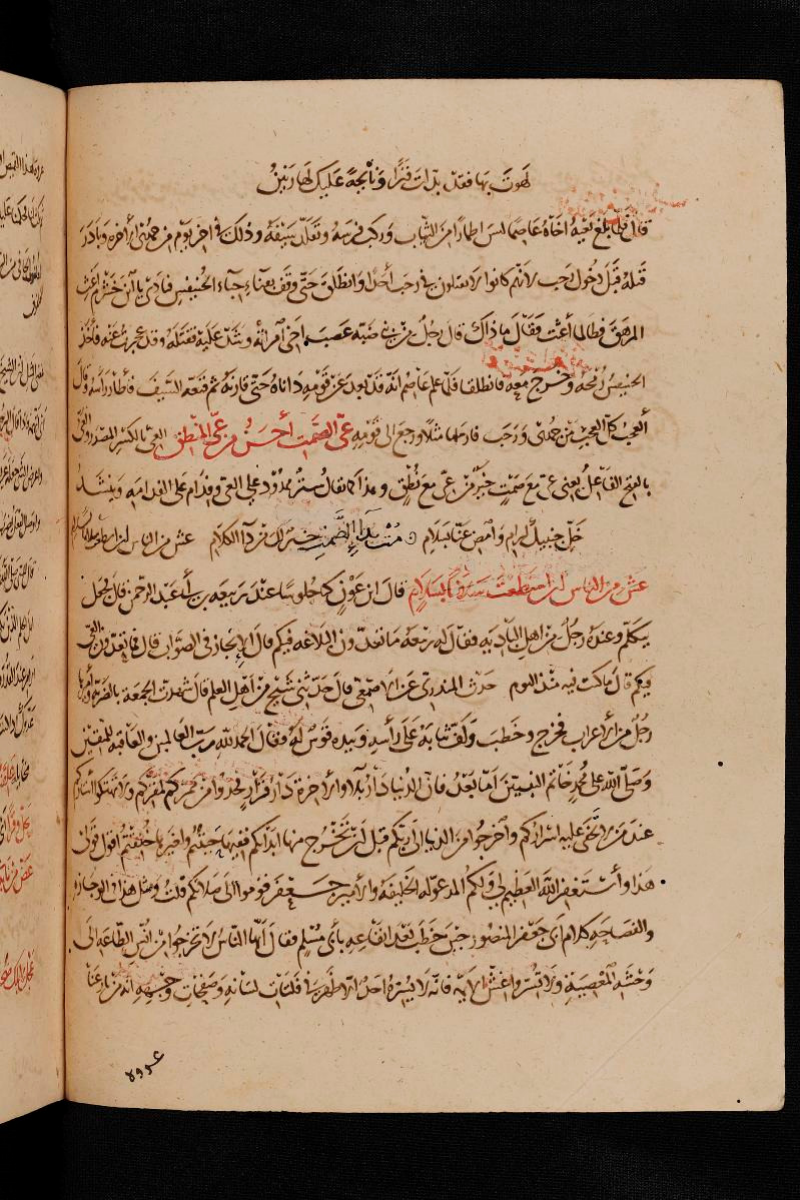 لهوت بها فعد بذات قنر ونائحة عليك لها رنين
قال فلما بلغ نعيه اخاه عاصما لبس اطمارا من الثياب وركب فرسه وتقلد سيفه وذلك في اخر يوم من جمادى الآخرة وبادر
قتله قبل دخول رجب لانهم كانوا لا يقتلون في رجب احدا وانطلق حتى وقف بفناء خباء الخنيفس فنادى يا ابن خشرم اغث
المرهق فطالما اغثت فقال ما ذاك قال رجل من بني ضبة غصب اخي امرأته وشد عليه فقتله وقد عجزت عنه فأخذ
الخنيفس رمحه وخرج معه فانطلقا فلما علم عاصم انه قد بعد عن قومه داناه حتى قارنه ثم قنعه السيف فأطار رأسه وقال
العجب كل العجب بين جمادى ورجب فارسلها مثلا ورجع الى قومه عي الصمت أحسن من عي المنطق العي بالكسر المصدر والعي
بالفتح الفاعل يعني عي مع صمت خير من عي مع نطق وهذا كما يقال ستر ممدود على العي وفدام على الفدامة وينشد
خل جنبيك لرام وامض عنه بسلام مت بداء الصمت خير لك من داء الكلام عش من الناس ان استطعت سالما
عش من الناس ان استطعت سالما بسلام قال ابن عون كنا جلوسا عند ربيعة بن أبي عبد الرحمن قال فجعل
يتكلم وعنده رجل من اهل البادية فقال له ربيعة ما تعدون البلاغة فيكم قال الايجاز في الصواب قال فما تعدون العي
فيكم قال ما كنت فيه منذ اليوم حدث المنذري عن الاصمعي قال حدثني شيخ من أهل العلم قال شهدت الجمعة بالضرية وأميرها
رجل من الاعراب فخرج وخطب ولف ثيابه على رأسه وبيده قوس له فقال الحمد لله رب العالمين والعاقبة للمتقين
وصلى الله على محمد خاتم النبيين أما بعد فان الدنيا دار بلاء والآخرة دار قرار فخذوا من ممركم لمقركم ولا تهتكوا استاركم
عند من لا تخفى عليه اسراركم واخرجوا من الدنيا الى ربكم قبل ان تخرج منها ابدانكم ففيها جئتم ولغيرها خلقتم اقول قولي
هذا وأستغفر الله العظيم لي ولكم المدعو له الخليفة والامير جعفر قوموا الى صلاتكم قلت ومثل هذا في الوجازة
والفصاحة كلام أبي جعفر المنصور حين خطب بعد ايقاعه بأبي مسلم فقال أيها الناس لا تخرجوا من انس الطاعة الى
وحشة المعصية ولا تسروا غش الأئمة فانه لا يسره احد الا ظهر في فلتات لسانه وصفحات وجهه انه من نازعنا
عروة